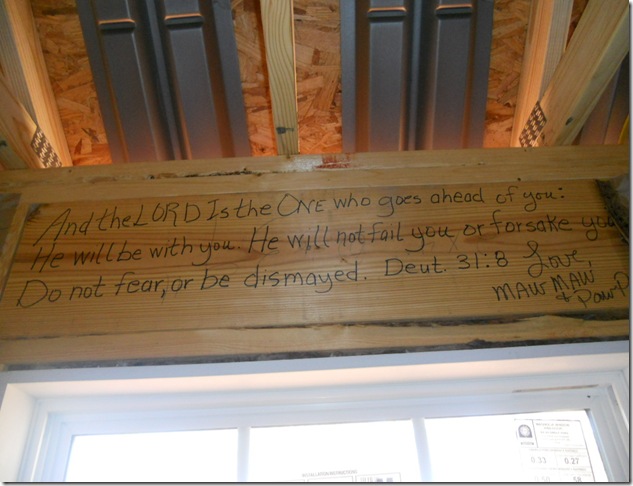 And the LORD Is the ONE who goes ahead of you:
He will be with you. He will not fail you or forsake you
Do not fear, or be dismayed. Deut. 31:8 Love,
MAW MAW
& PawP
INSTALLATION INSTRUCTIONS
0.33 0.27